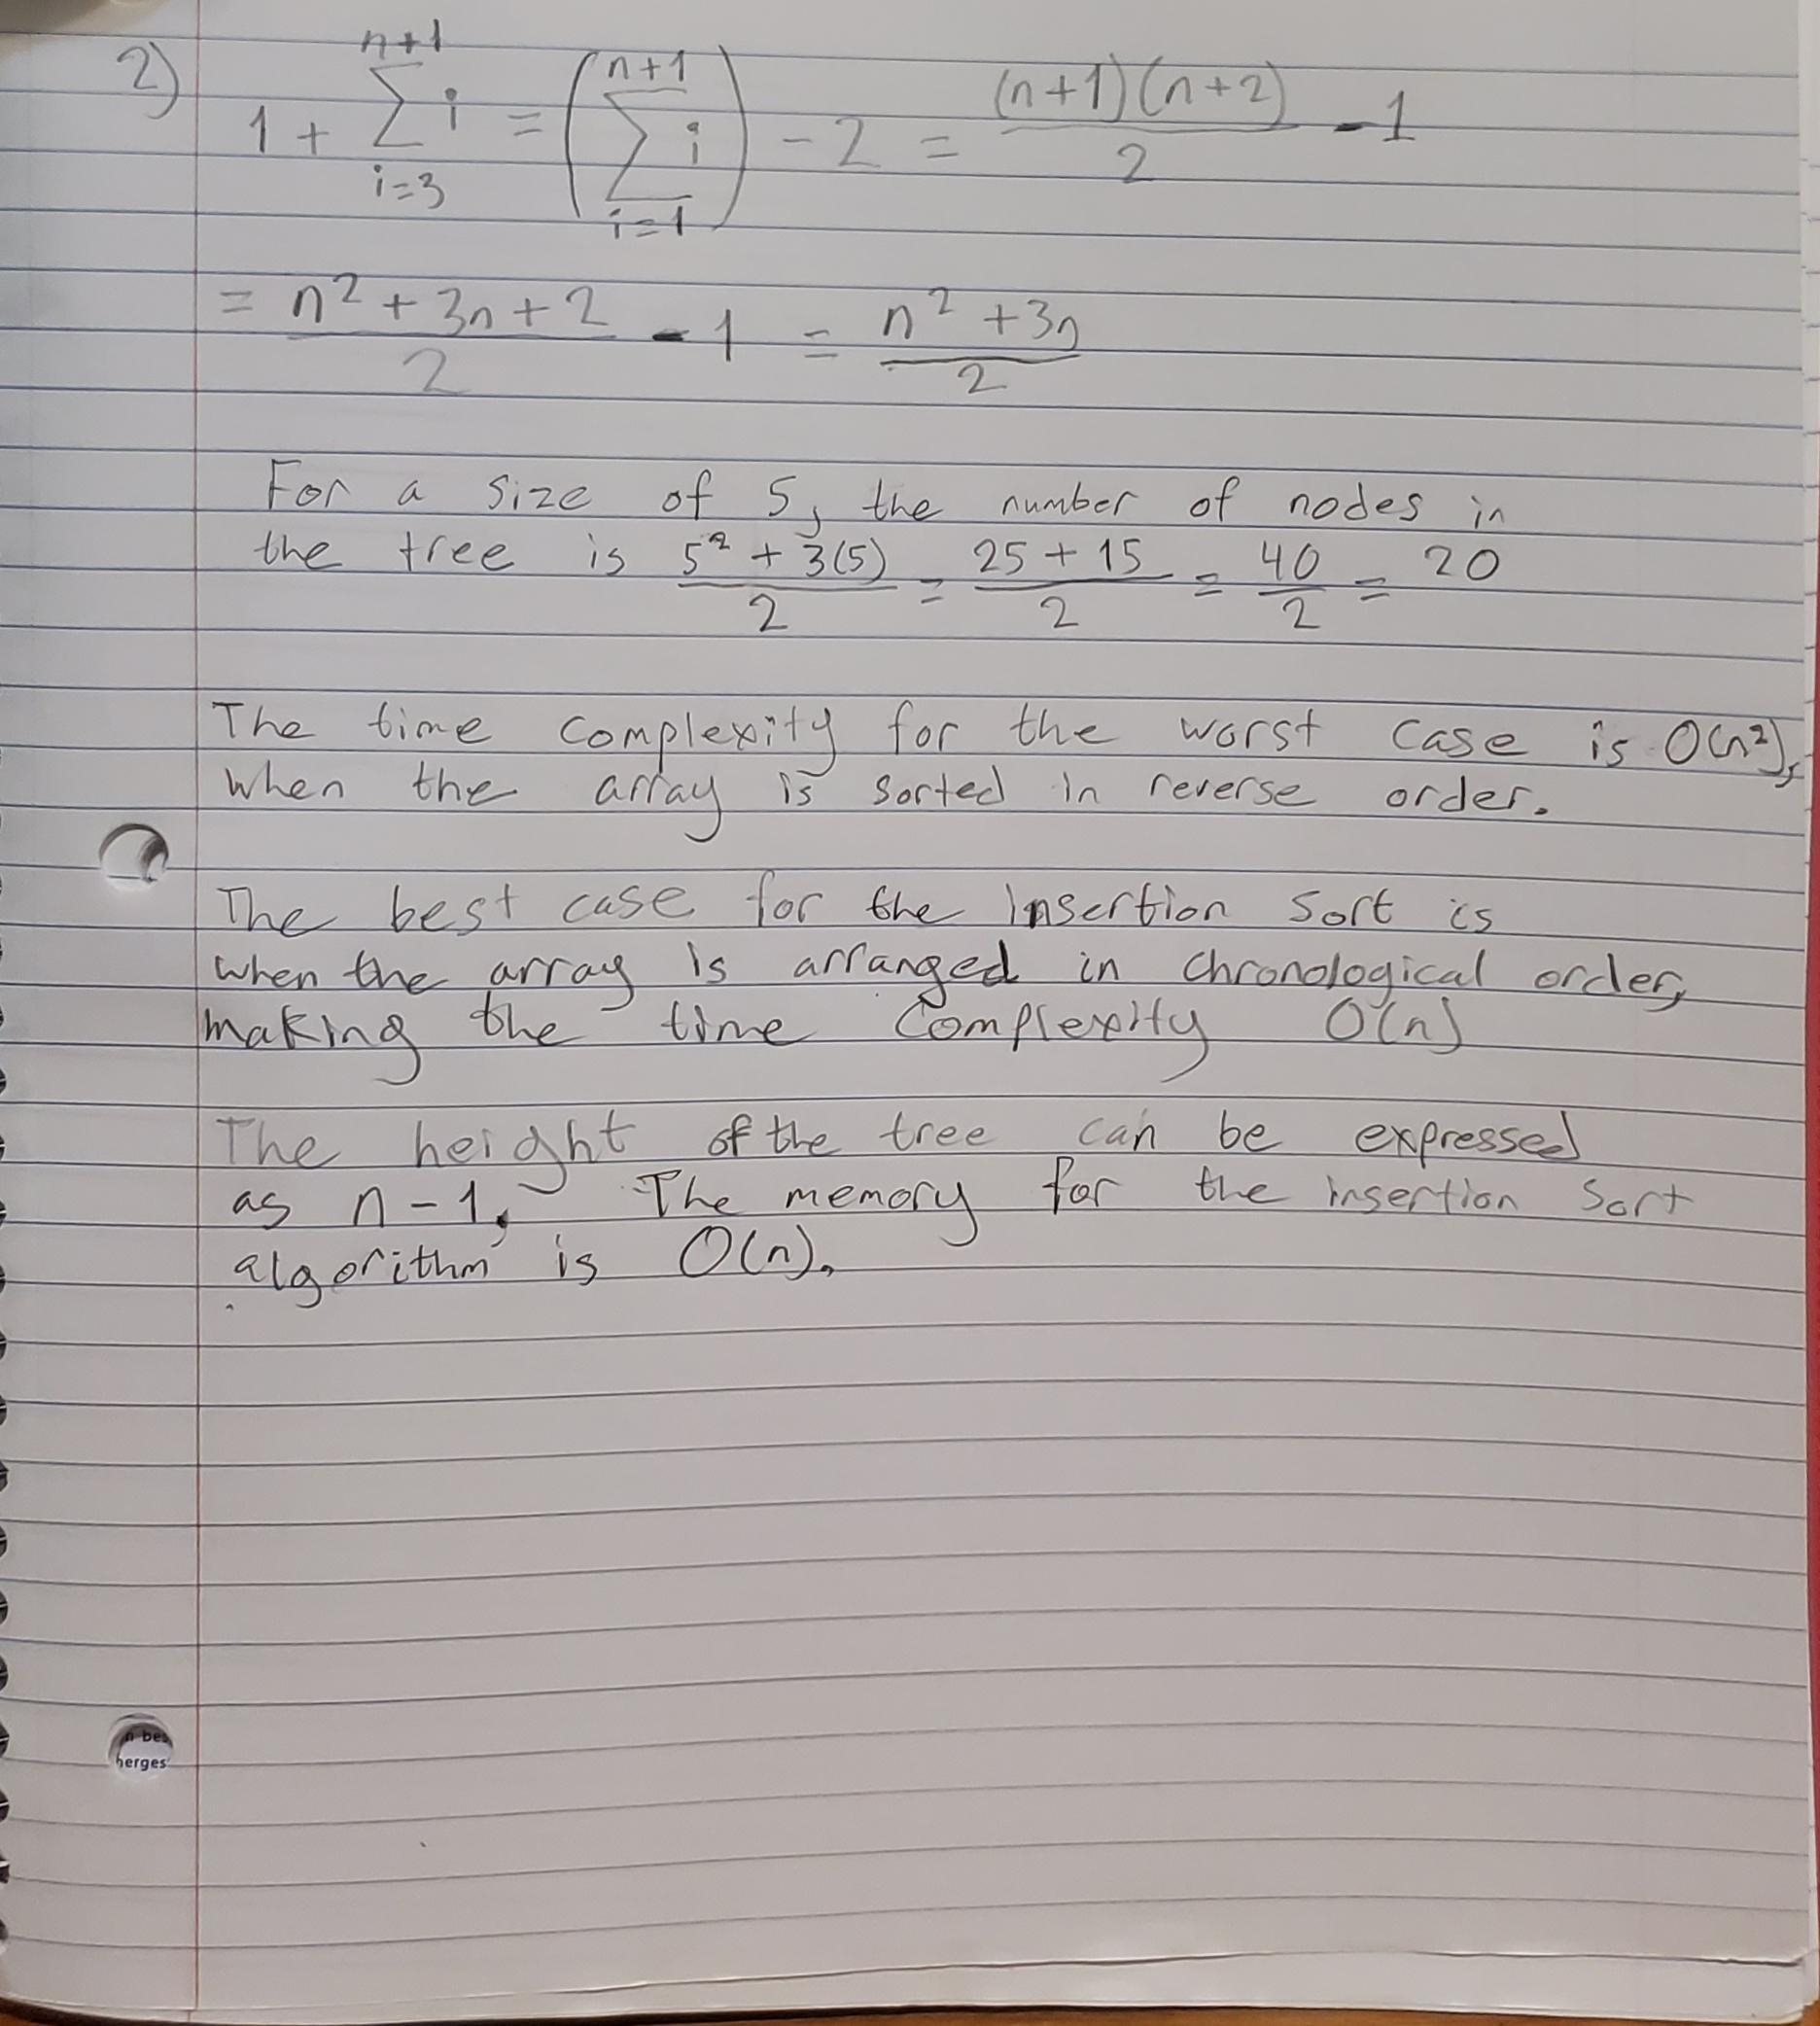 2) 1 + \sum_{i=3}^{n+1} i = \left( \sum_{i=1}^{n+1} i \right) - 2 = \frac{(n+1)(n+2)}{2} - 1
= \frac{n^2 + 3n + 2}{2} - 1 = \frac{n^2 + 3n}{2}
For a size of 5, the number of nodes in
the tree is \frac{5^2 + 3(5)}{2} = \frac{25 + 15}{2} = \frac{40}{2} = 20
The time complexity for the worst case is O(n²),
when the array is sorted in reverse order.
The best case for the insertion sort is
when the array is arranged in chronological order,
making the time complexity O(n)
The height of the tree can be expressed
as n - 1. The memory for the insertion sort
algorithm is O(n).
n-bes
herges